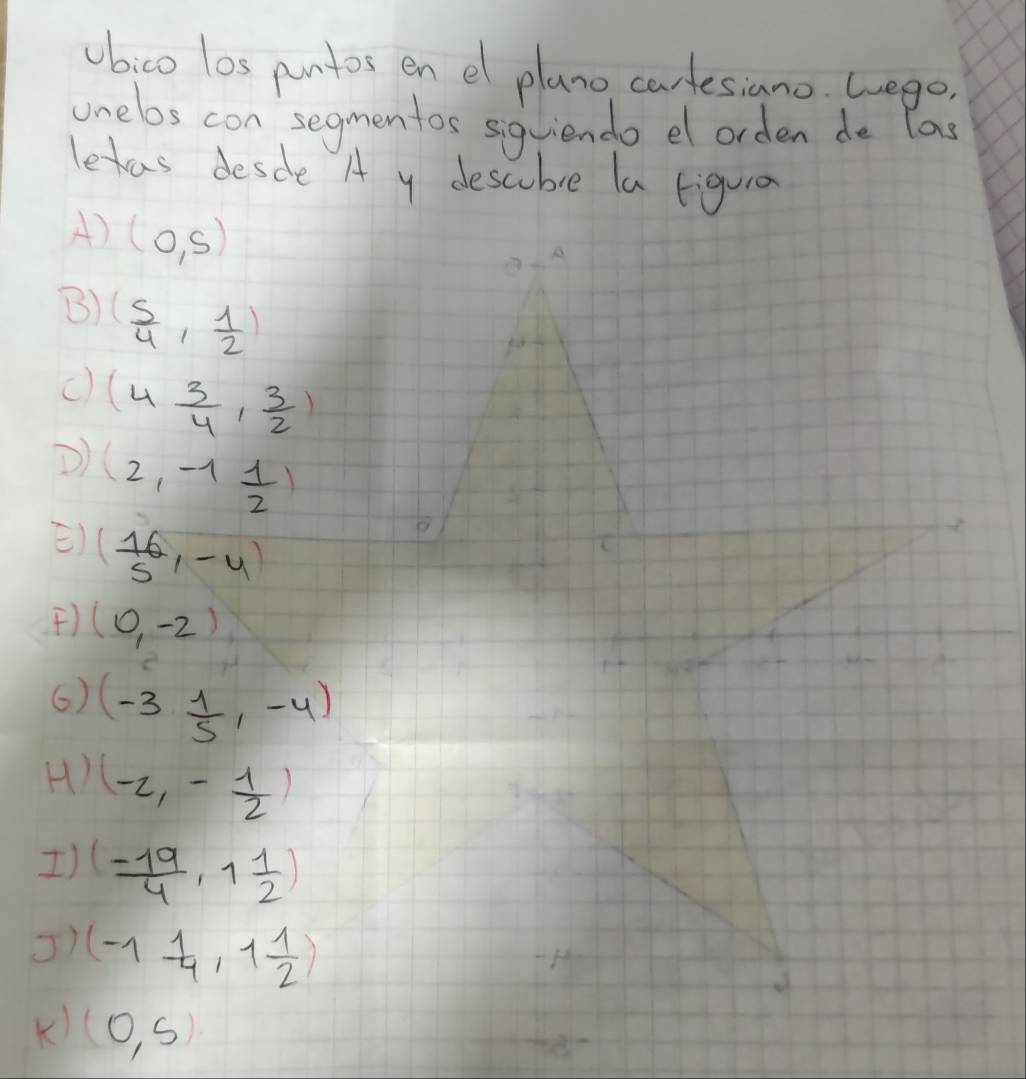 Ubico los puntos en el plano cartesiano. Luego,
unelos con segmentos siguiendo el orden de las
letras desde A y descubre la figura
A) (0,5)
B) (5/4, 1/2)
C) (4 3/4, 3/2)
D) (2, -1 1/2)
E) (16/5, -4)
F) (0, -2)
G) (-3 1/5, -4)
H) (-2, - 1/2)
I) (-19/4, 1 1/2)
J) (-1 1/4, 1 1/2)
K) (0,5)